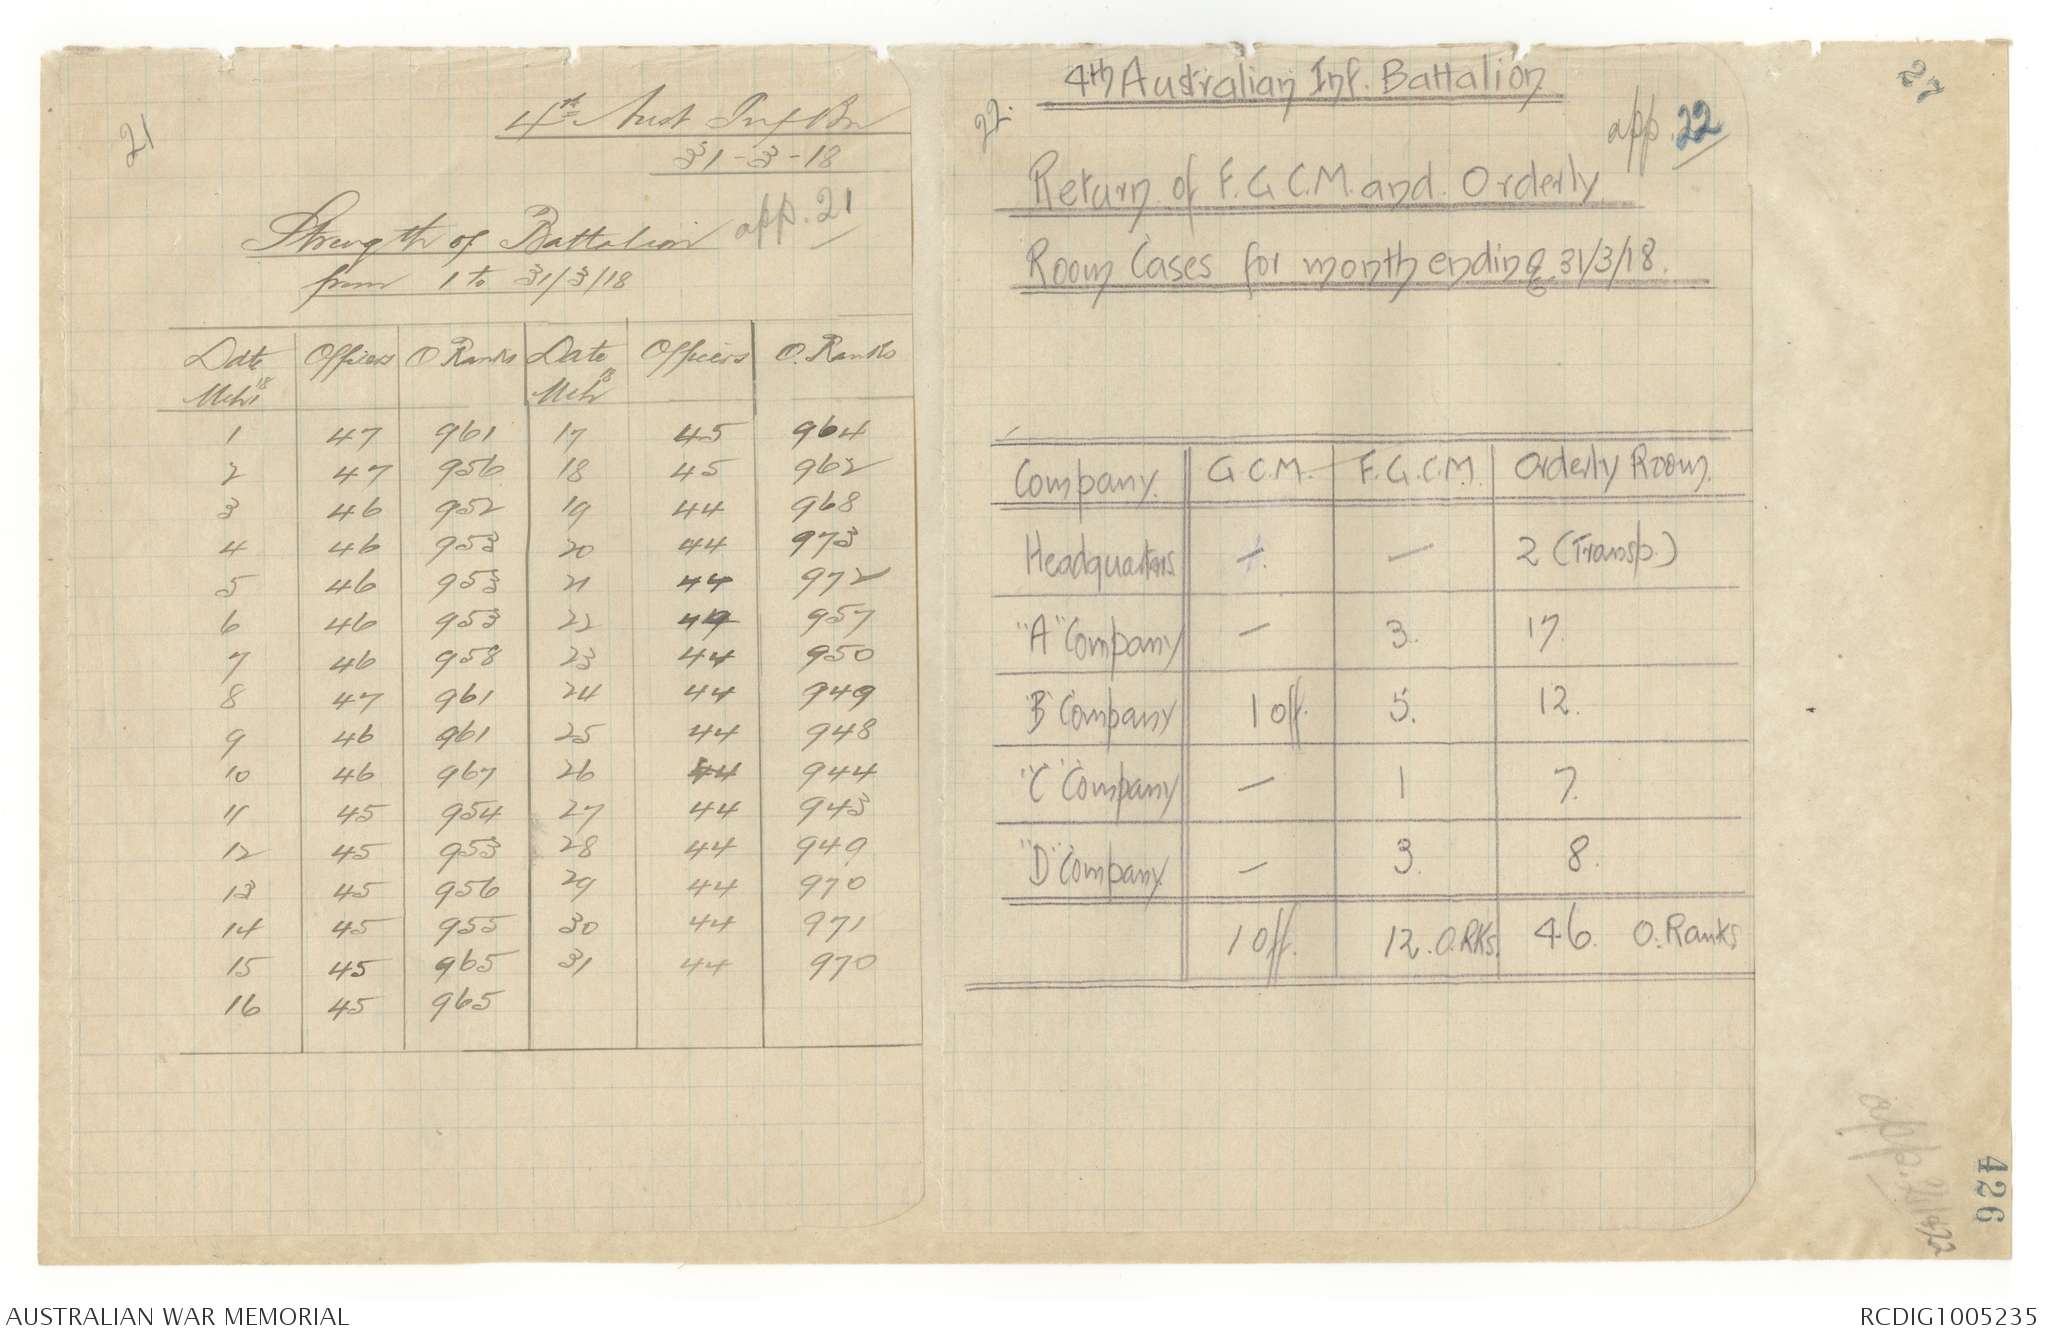 21
4th Aust Inf Bn
31-3-18
Strength of Battalion app. 21
from 1 to 31/3/18
Date Officers O Ranks Date Officers O. Ranks
Mch 18 Mch 18
1 47 961 17 45 964
2 47 956 18 45 962
3 46 952 19 44 968
4 46 953 20 44 973
5 46 953 21 44 972
6 46 953 22 44 957
7 46 958 23 44 950
8 47 961 24 44 949
9 46 961 25 44 948
10 46 967 26 44 944
11 45 954 27 44 943
12 45 953 28 44 949
13 45 956 29 44 970
14 45 955 30 44 971
15 45 965 31 44 970
16 45 965
22.
4th Australian Inf. Battalion
app. 22
Return of F.G.C.M. and Orderly
Room Cases for month ending 31/3/18.
Company. G.C.M. F.G.C.M. Orderly Room.
Headquarters - — 2 (Transp.)
"A" Company — 3. 17.
"B" Company 1 off. 5. 12.
"C" Company — 1 7.
"D" Company — 3. 8.
1 Off. 12. O.RKs. 46. O.Ranks
27
426
AUSTRALIAN WAR MEMORIAL
RCDIG1005235